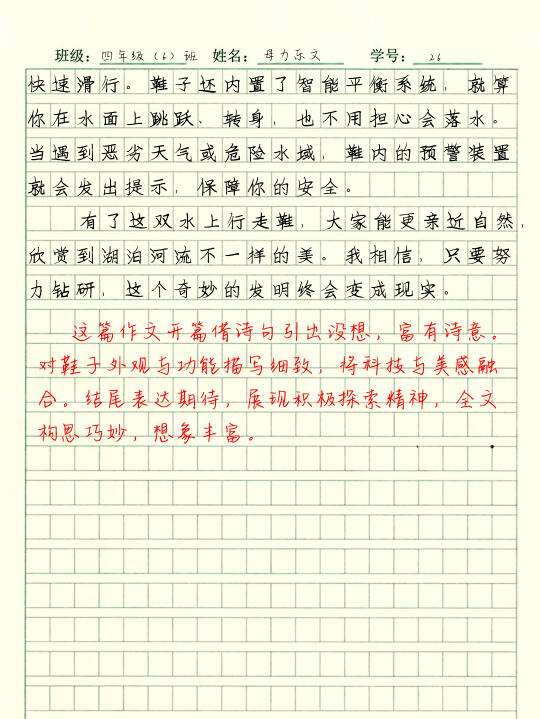 班级：四年级（6）班 姓名：母力乐文 学号：26
快速滑行。鞋子还内置了智能平衡系统，就算
你在水面上跳跃、转身，也不用担心会落水。
当遇到恶劣天气或危险水域，鞋内的预警装置
就会发出提示，保障你的安全。
有了这双水上行走鞋，大家能更亲近自然，
欣赏到湖泊河流不一样的美。我相信，只要努
力钻研，这个奇妙的发明终会变成现实。
这篇作文开篇借诗句引出设想，富有诗意。
对鞋子外观与功能描写细致，将科技与美感融
合。结尾表达期待，展现积极探索精神，全文
构思巧妙，想象丰富。